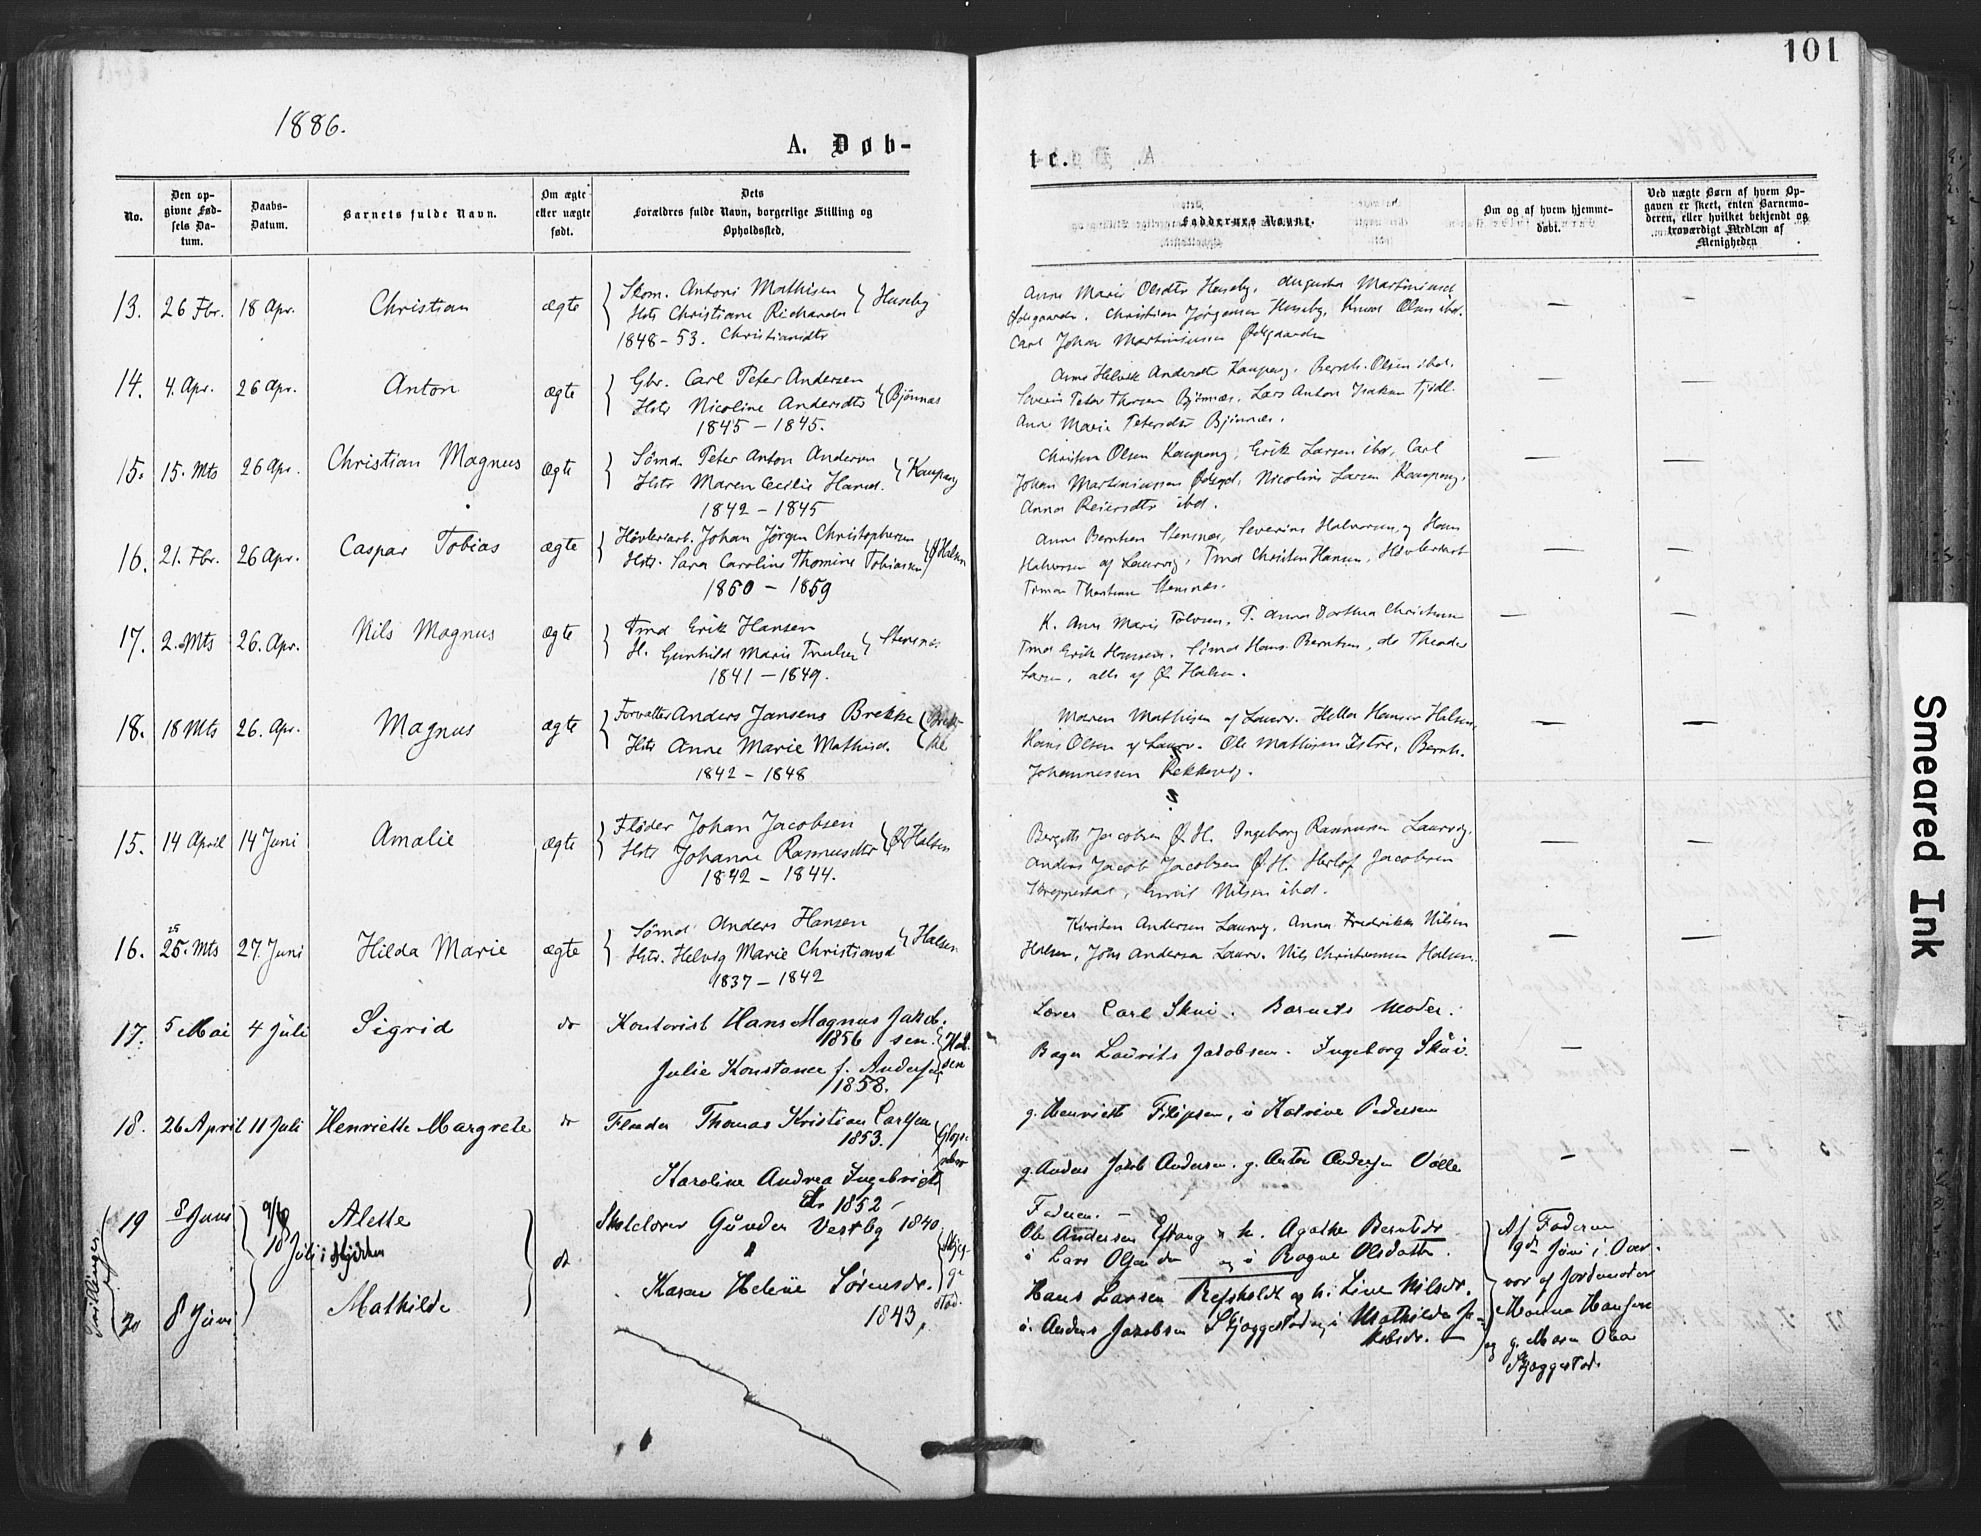 101
1886.
A. Døb-
te.
No.
Den op-
givne Fød-
sels Da-
tum.
Daabs-
Datum.
Barnets fulde Navn.
Om ægte
eller uægte
født.
Dets
Forældres fulde Navn, borgerlige Stilling og
Opholdssted.
Faddernes Navne.
Om og af hvem hjemme-
døbt.
Ved uægte Børn af hvem Op-
gaven er skeet, enten Barnemo-
deren, eller hvilket bekjendt og
troværdigt Medlem af
Menigheden
13. 26 Fbr. 18 Apr. Christian ægte
Skom. Antoni Mathisen
Hst Christiane Richards Huseby
1848 - 53. Christiansdtr
Anne Marie Olsdtr Huseby, Augusta Martiniusd
Ødegaarden. Christian Jørgensen Huseby, Knud Olsen ibd.
Carl Johan Martiniussen Ødegaarden
— —
14. 4. Apr. 26 Apr. Anton ægte
Gbr. Carl Peter Andersen
Hstr Nicoline Andersdtr Bjønnæs
1845 - 1845.
Anne Helvik Andersdtr Kaupang. Bernh. Olsen ibd.
Severin Peter Thorsen Bjønnæs. Lars Anton Isaksen
Anne Marie Petersdtr Bjønnæs.
— —
15. 15. Mts 26 Apr. Christian Magnus ægte
Sømd. Peter Anton Andersen
Hstr Maren Cecilie Hansd. Kaupang
1842 - 1845
Christen Olsen Kaupang, Erik Larsen ibd, Carl
Johan Martiniussen Ødegd, Nicoline Larsen Kaupang,
Anna Reiersdtr ibd.
— —
16. 21. Fbr. 26 Apr. Caspar Tobias ægte
Høvleriarb. Johan Jørgen Christophersen
Hstr. Sara Caroline Thomine Tobiassen Ø Halsen
1860 - 1859
Anne Berntsen Stensnæs, Severine Halvorsen, og Hans
Halvorsen af Laurvig, Tmd Christen Hansen, Høvleriarb
Stensnæs.
— —
17. 2. Mts 26. Apr. Nils Magnus ægte
Tmd Erik Hansen
H. Gunhild Marie Stensnæs
1841 - 1849.
K. Anne Marie P. Anne Dorthea Christensen
Tmd Erik Hansen. Sømd Hans Berntsen, do Theodor
Larsen, alle af Ø Halsen.
— —
18. 18 Mts 26. Apr. Magnus ægte
Forvalter Anders Jansens Brekke
Hstr Anne Marie Mathisd.
1842 - 1848
Maren Mathisen af Laurv. Hella Hansen Halsen,
Hans Olsen af Laurv. Ole Mathisen Istre, Bernh.
Johannessen Rekkevig.
— —
15. 14 April 14 Juni Amalie ægte
Fløder Johan Jacobsen
Hstr Johanne Rasmusdtr Ø Halsen
1842 - 1844.
Bergitte Jacobsen Ø H. Ingeborg Rasmussen Laurvig.
Anders Jacob Jacobsen Ø H. Herlof Jacobsen
Emil Nilsen ibd.
— —
16. 25
25. Mts 27. Juni Hilda Marie ægte
Sømd Anders Hansen
Hstr. Helvig Marie Christiansd Halsen
1837 - 1842
Kirsten Andersen Laurvig. Anna Fredrikke Nilsen
Halsen, Jøns Andersen Laurv. Nils Christiansen Halsen.
— —
17. 5 Mai 4 Juli Sigrid do
Kontorist Hans Magnus Jakob-
1856 sen. Hal-
Julie Konstance f. Andersen sen
1858.
Carl Skui. Barnets Moder.
Bager Laurits Jakobsen. Ingeborg Skui.
—
18. 26 April 11 Juli Henriette Margrete do
Thomas Kristian Carlsen
1853.
Karoline Andrea Ingebrigts
dtr 1852
g. Henriette Filipsen, i Katrine Pedersen
g. Anders Jakob Andersen. g. Anton Andersen Valle
Faderen. —
—
Tvillinger
19 8 Juni 18 Juli i Kjirken Alette do
Skolelærer Gunder Vestby 1840
Karen Helene Sørensdr. Skjeg-
ge
stad.
1843,
Ole Andersen Eftang & k. Agathe Berntdr
i Lars Olsen og i Ragne Olsdatter.
Af Faderen
9de Juni i Over-
vær af Jordmoder
Hanna Hansen
og g. Maren Olea
Skjeggestad.
20 8 Juni Mathilde
Hans Larsen Refsholdt og k. Line Nilsdr.
i. Anders Jakobsen Skjeggestad og i Mathilde Ja-
kobsdr. —
Smeared Ink